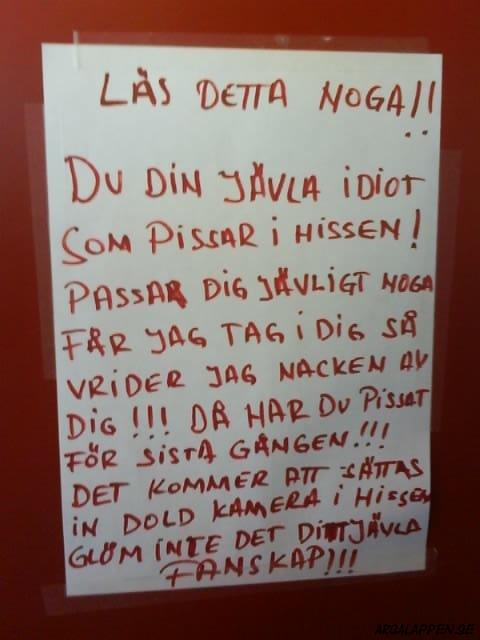 LÄS DETTA NOGA!!
DU DIN JÄVLA iDiOT
SOM PiSSAR i HiSSEN!
PASSAR DiG JÄVLiGT NOGA
FÅR JAG TAG i DiG SÅ
VRiDER JAG NACKEN AV
DiG!!! DÅ HAR DU PiSSAT
FÖR SiSTA GÅNGEN!!!
DET KOMMER ATT SÄTTAS
iN DOLD KAMERA i HiSSEN
GLÖM iNTE DET DiTTJÄVLA
FANSKAP!!!
ARGALAPPEN.SE